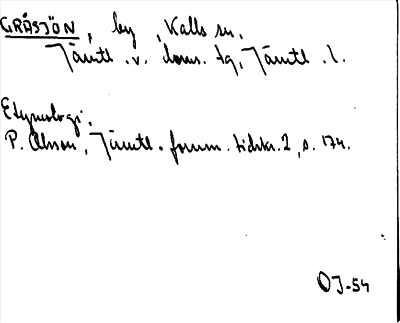 GRÅSJÖN, by, Kalls sn.
Jämtl. v. doms. tg, Jämtl. l.
Etymologi.
P. Olsson, Jämtl. fornm. tidskr. 2, s. 174.
OJ-54